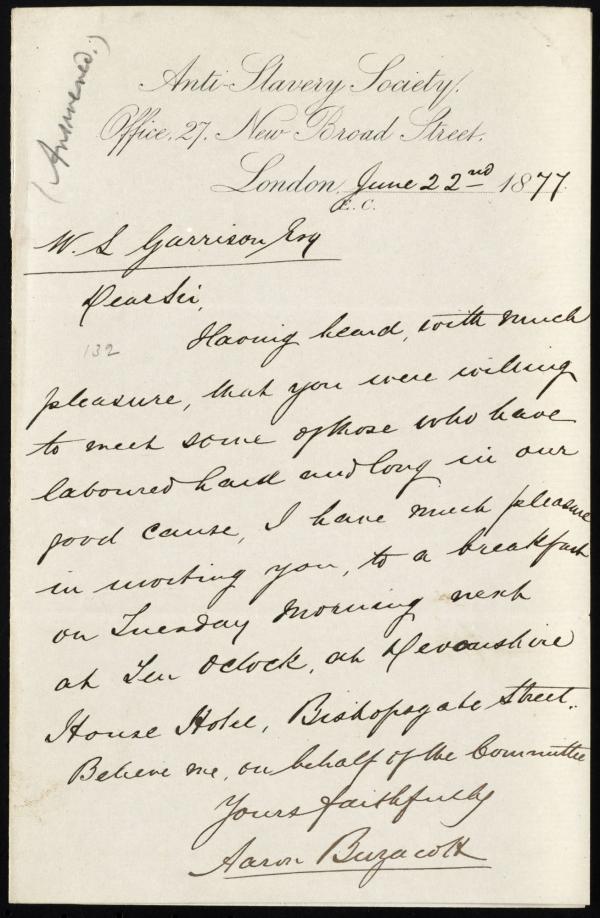 (Answered.)
Anti-Slavery Society.
Office, 27, New Broad Street,
London, June 22nd 1877
E.C.
W. L Garrison Esq
Dear Sir,
132
Having heard, with much
pleasure, that you were willing
to meet some of those who have
laboured hard and long in our
good cause, I have much pleasure
in inviting you, to a breakfast
on Tuesday Morning next
at Ten Oclock, at Devonshire
House Hotel, Bishopsgate Street.
Believe me, on behalf of the Committee
Yours faithfully
Aaron Buzacott